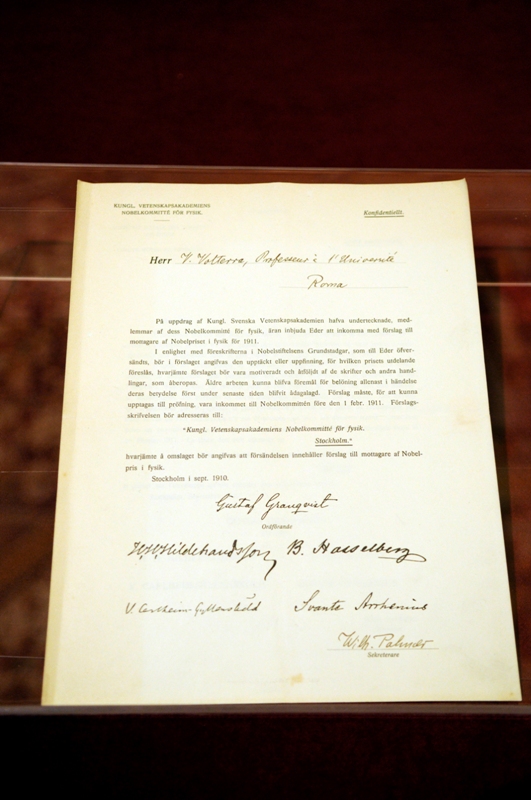 KUNGL. VETENSKAPSAKADEMIENS
NOBELKOMMITTÉ FÖR FYSIK.
Konfidentiellt.
Herr V. Volterra, Professeur à l'Université
Roma
På uppdrag af Kungl. Svenska Vetenskapsakademien hafva undertecknade, med-
lemmar af dess Nobelkommitté för fysik, äran inbjuda Eder att inkomma med förslag till
mottagare af Nobelpriset i fysik för 1911.
I enlighet med föreskrifterna i Nobelstiftelsens Grundstadgar, som till Eder öfver-
sändts, bör i förslaget angifvas den upptäckt eller uppfinning, för hvilken prisets utdelande
föreslås, hvarjämte förslaget bör vara motiveradt och åtföljdt af de skrifter och andra hand-
lingar, som åberopas. Äldre arbeten kunna blifva föremål för belöning allenast i händelse
deras betydelse först under senaste tiden blifvit ådagalagd. Förslag måste, för att kunna
upptagas till pröfning, vara inkommet till Nobelkommittén före den 1 febr. 1911. Förslags-
skrifvelsen bör adresseras till:
"Kungl. Vetenskapsakademiens Nobelkommitté för fysik.
Stockholm."
hvarjämte å omslaget bör angifvas att försändelsen innehåller förslag till mottagare af Nobel-
pris i fysik.
Stockholm i sept. 1910.
Gustaf Granqvist
Ordförande
H. H. Hildebrandsson B. Hasselberg
V. Carlheim-Gyllensköld Svante Arrhenius
W. Palmær
Sekreterare